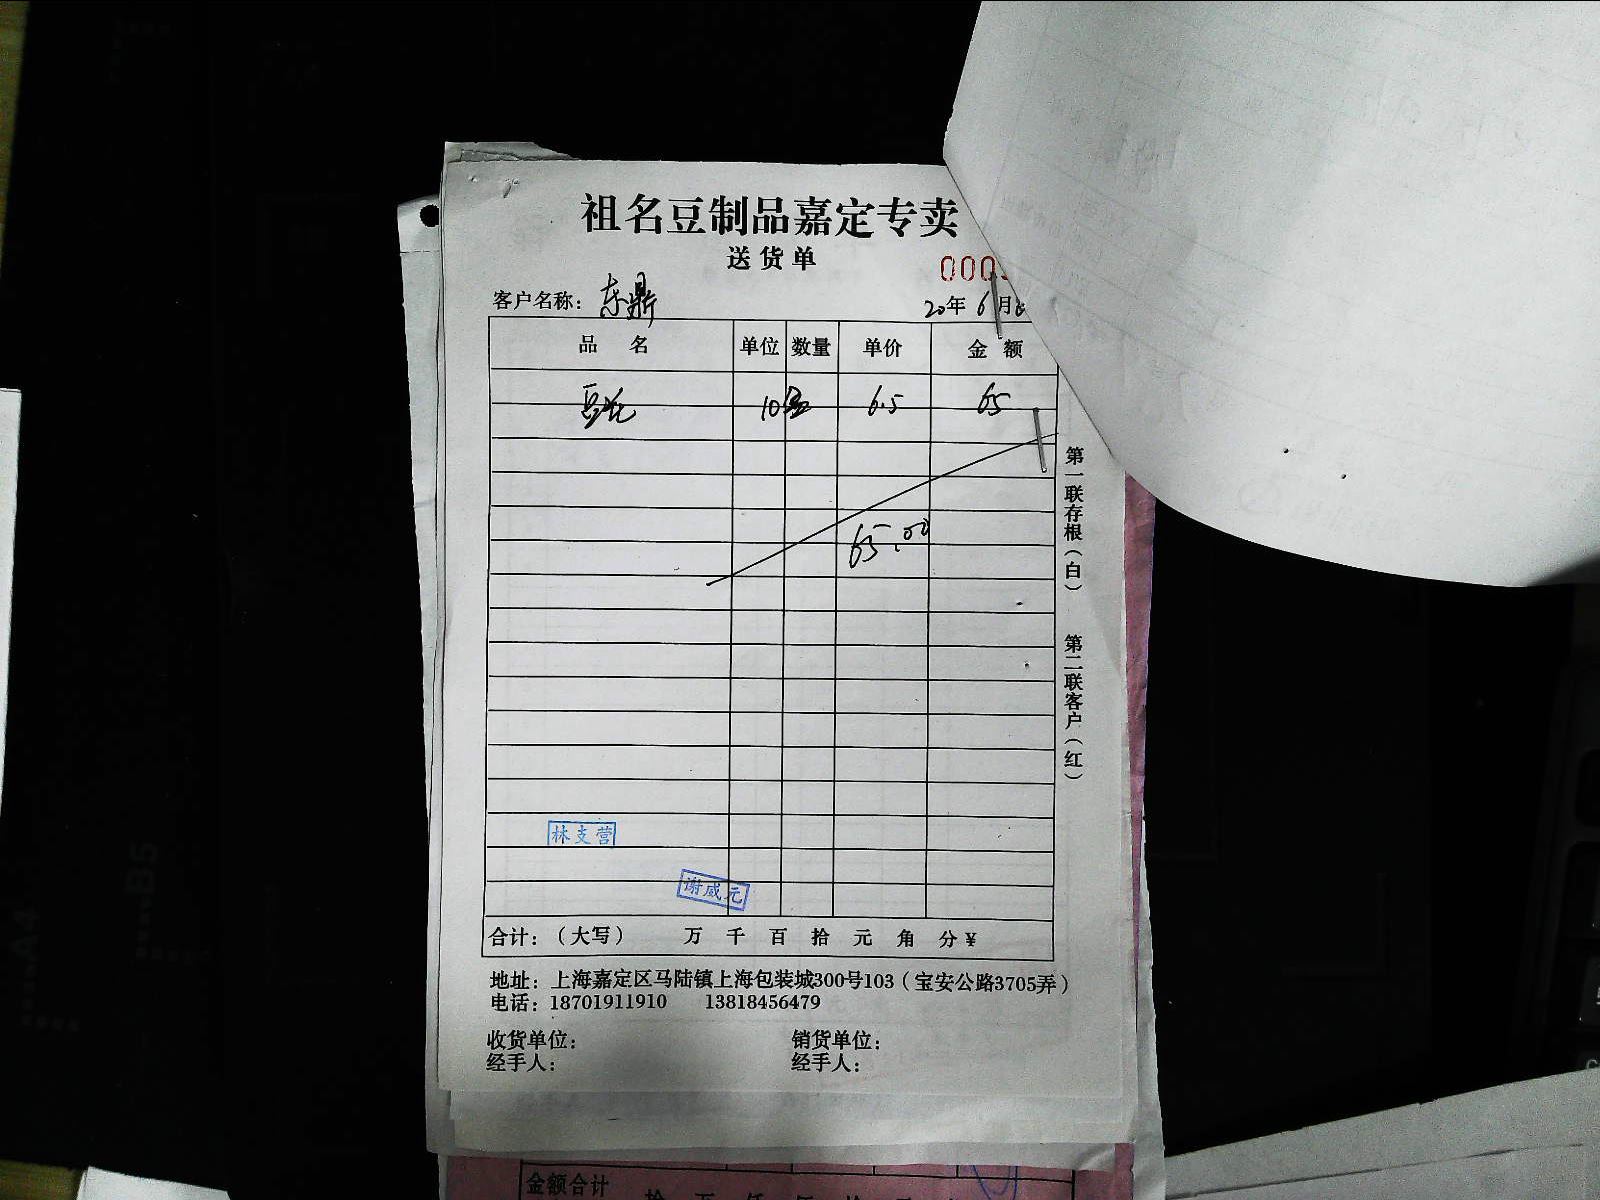 祖名豆制品嘉定专卖
送货单
000
客户名称： 东鼎
20年6月
品 名 单位 数量 单价 金 额
豆花 10盒 6.5 65
65.00
第一联存根（白） 第二联客户（红）
林支营
谢威元
合计：（大写） 万 千 百 拾 元 角 分￥
地址：上海嘉定区马陆镇上海包装城300号103（宝安公路3705弄）
电话：18701911910 13818456479
收货单位： 销货单位：
经手人： 经手人：
金额合计
A4
B5